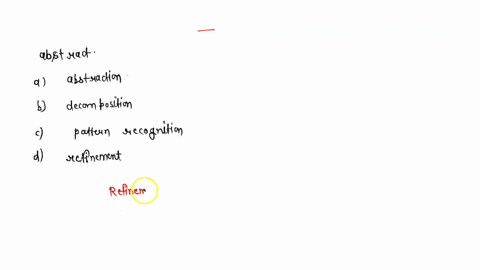 abstract.
a) abstraction.
b) decomposition
c) pattern recognition
d) refinement
Refinem